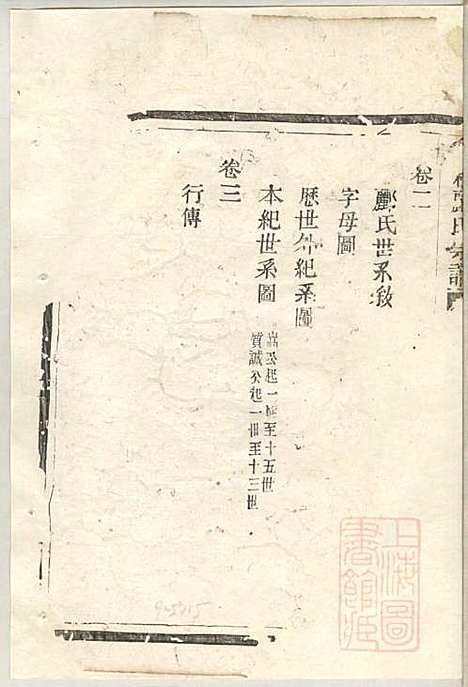 氏宗譜
卷二
酈氏世系敘
字母圖
歷世外紀系圖
本紀世系圖
公起一世至十五世
質誠公起一世至十三世
卷三
行傳
上海圖
書館藏